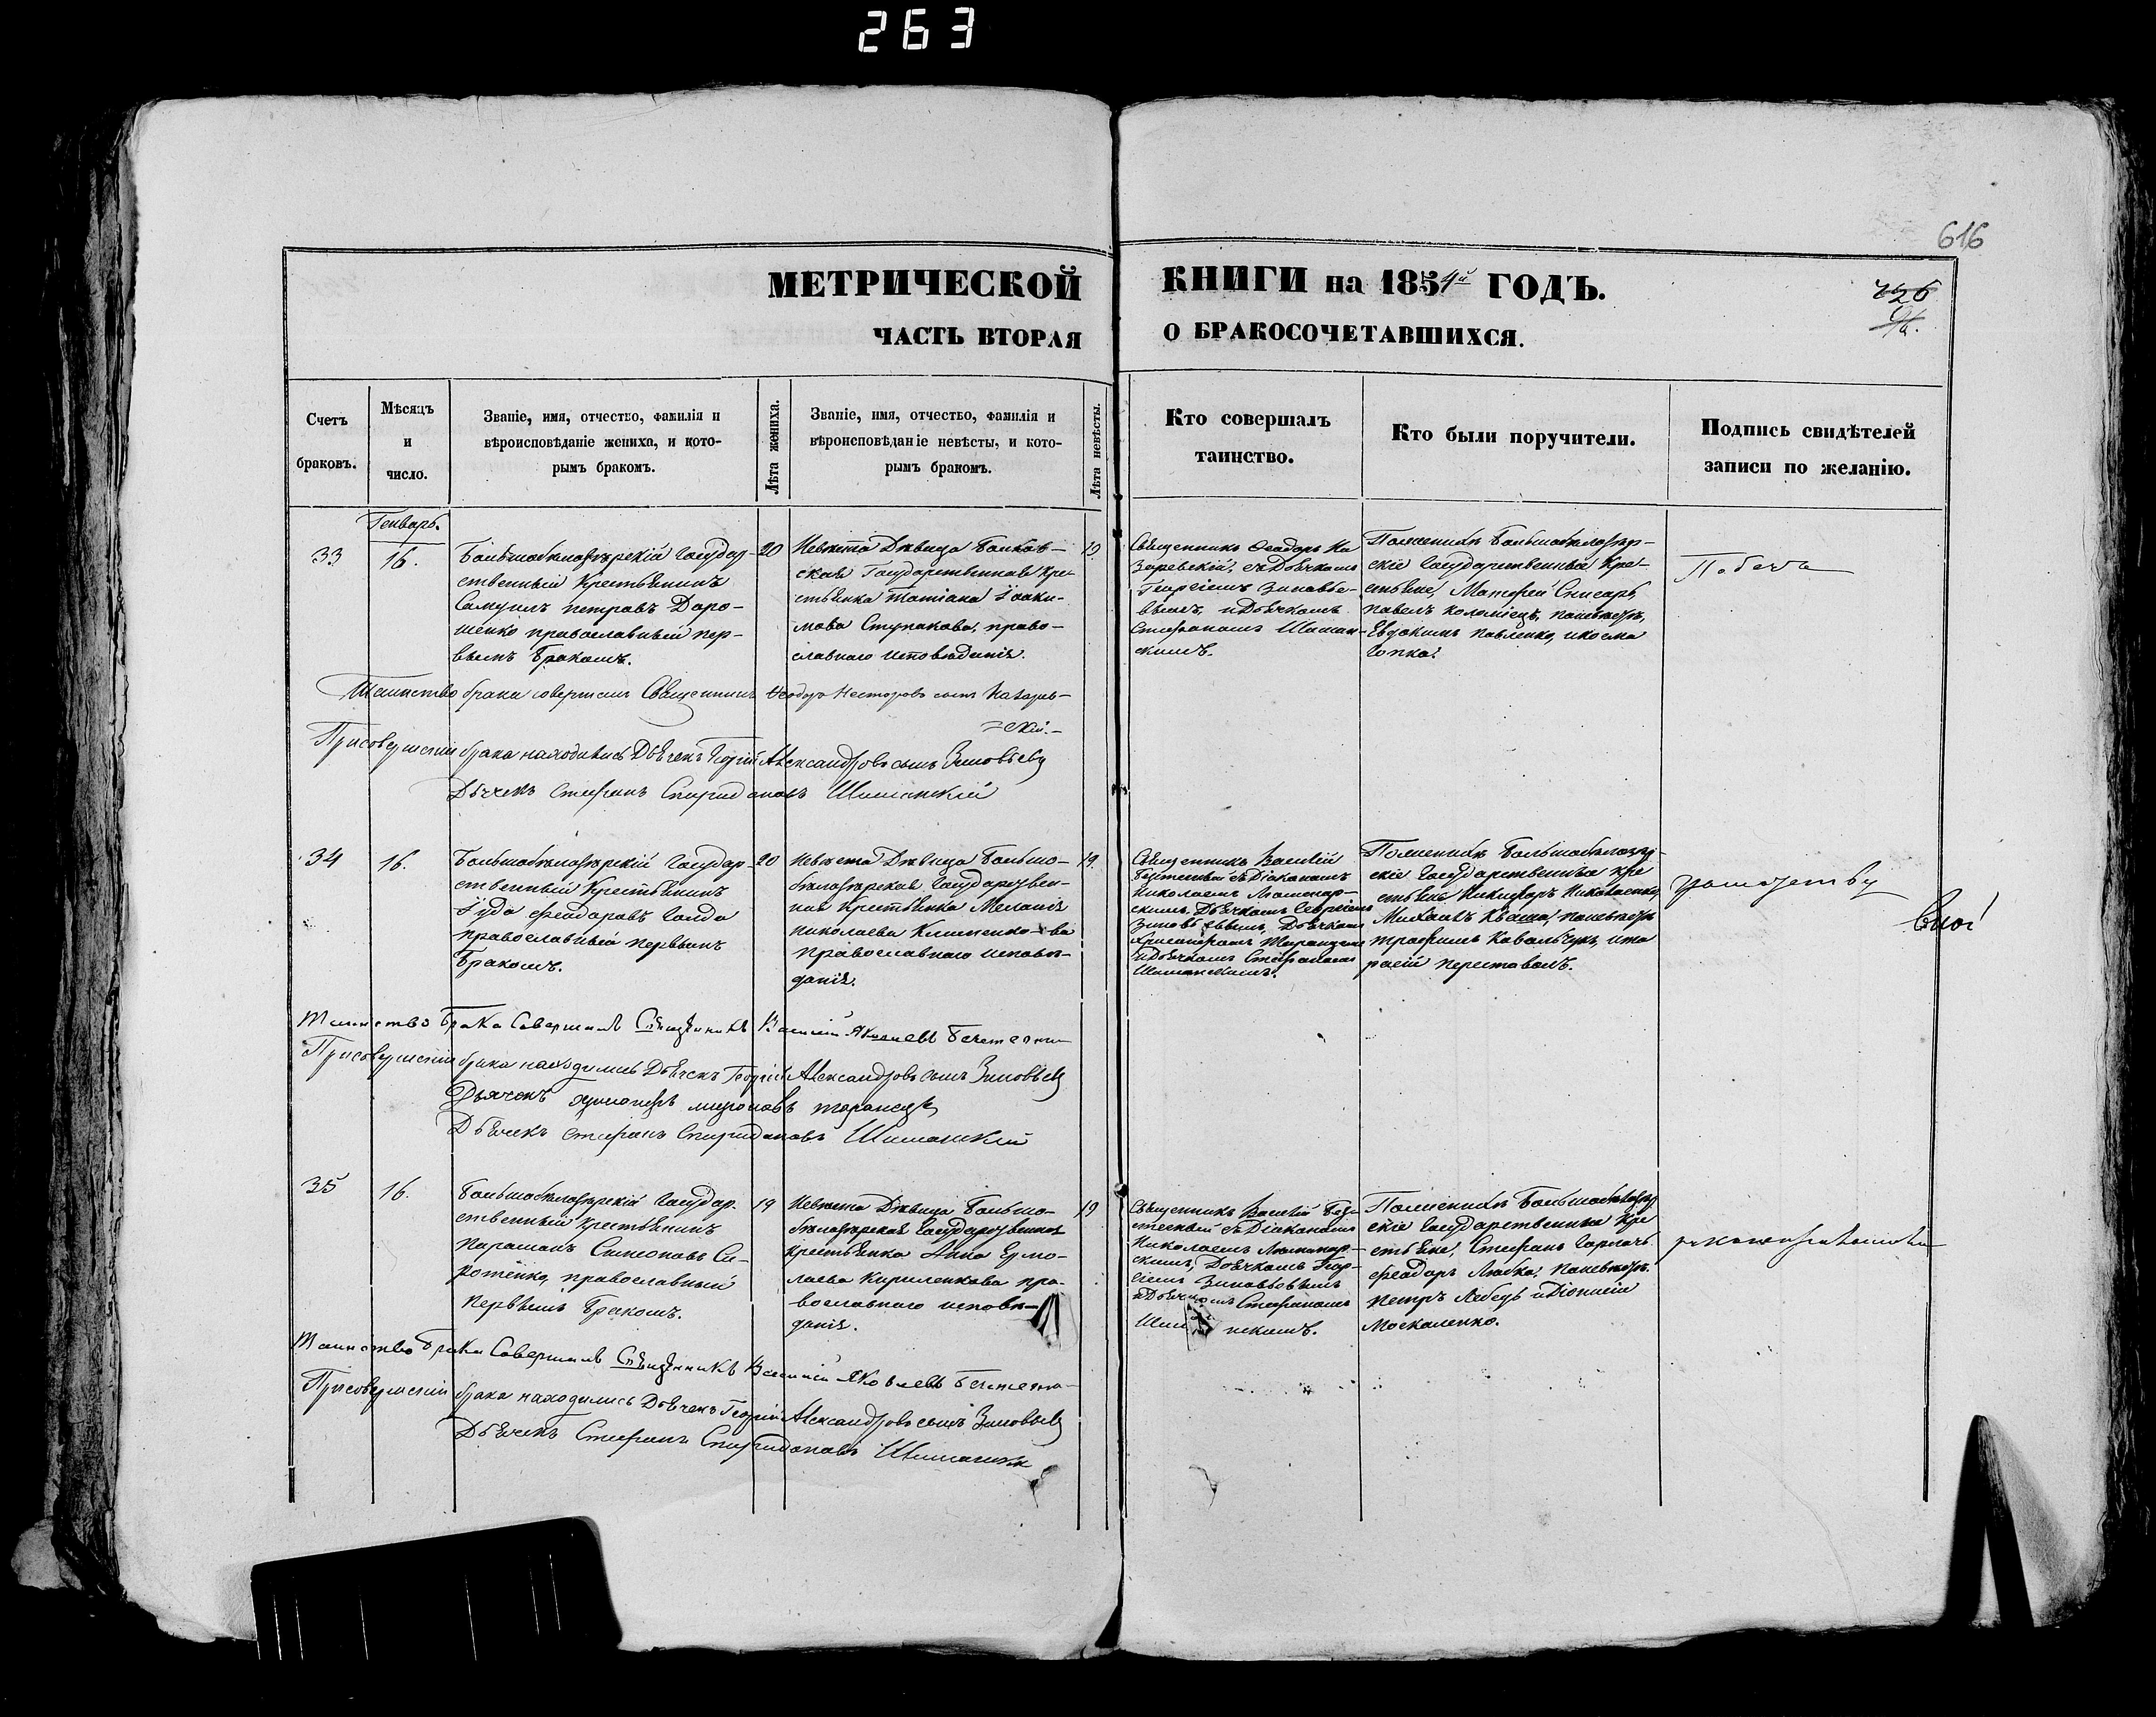 263
616
МЕТРИЧЕСКОЙ КНИГИ на 1854й ГОДЪ.
ЧАСТЬ ВТОРАЯ О БРАКОСОЧЕТАВШИХСЯ.
Счетъ браковъ.
Мѣсяцъ и число.
Званіе, имя, отчество, фамилія и
вѣроисповѣданіе жениха, и кото-
рымъ бракомъ.
Лѣта жениха.
Званіе, имя, отчество, фамилія и
вѣроисповѣданіе невѣсты, и кото-
рымъ бракомъ.
Лѣта невѣсты.
Кто совершалъ
таинство.
Кто были поручители.
Подпись свидѣтелей
записи по желанію.
Генварь.
33
16.
Большобѣлозѣрскій Государ-
ственный Крестьянинъ
Самуилъ Петровъ Доро-
шенко православный пер-
вымъ бракомъ.
20
Невѣста Дѣвица
ская Государственная Кре-
стьянка Татіана Іоаки-
мова Ступакова, право-
славнаго исповѣданія.
19.
Священникъ Феодоръ На
заревскій, съ Дьячкомъ
Георгіемъ Зиновье-
вымъ, и Дьячкомъ
Стефаномъ Шиман-
скимъ.
По женихѣ Большобѣлозѣр-
скіе Государственные Кре-
стьяне, Матфей Снисарь,
Павелъ Коломіецъ, по невѣстѣ,
Евдокимъ Павленко, и Косма
Гопка.
Таинство брака совершилъ Священникъ Феодоръ Несторовъ сынъ Назарев-
=скій.
При совершеніи брака находились Дьячекъ Георгій Александровъ сынъ Зиновьевъ
Дьячекъ Стефанъ Спиридоновъ Шиманскій
34
16.
Большобѣлозѣрскій Государ-
ственный Крестьянинъ
Іуда Феодоровъ Гайда
православный первымъ
бракомъ.
20
Невѣста Дѣвица Большо-
бѣлозѣрская, Государствен-
ная Крестьянка Меланія
Николаева Клименкова
православнаго исповѣ-
данія.
19.
Священникъ Василій
съ Діакономъ
Николаемъ
скимъ, Дьячкомъ Георгіемъ
Зиновьевымъ, Дьячкомъ
и Дьячкомъ Стефаномъ
Шиманскимъ.
По женихѣ Большобѣлозѣр-
скіе Государственные Кре
стьяне Никифоръ Николаенко,
Михаилъ Кваша, по невѣстѣ
Трофимъ Ковальчукъ, и Та
расій Перетовалъ.
Таинство брака Совершилъ Священникъ Василій Яковлевъ
При совершеніи брака находились Дьячекъ Георгій Александровъ сынъ Зиновьевъ
Дьячекъ Мироновъ
Дьячекъ Стефанъ Спиридоновъ Шиманскій
35
16.
Большобѣлозѣрскій Государ-
ственный Крестьянинъ
Парамонъ Симеоновъ Си-
ротенко, православный
первымъ бракомъ.
19
Невѣста Дѣвица Большо-
бѣлозѣрская Государственная
Крестьянка Анна Ермо-
лаева Кириленкова пра-
вославнаго исповѣ-
данія.
19
Священникъ Василій
съ Діакономъ
Николаемъ
скимъ, Дьячкомъ Геор-
гіемъ Зиновьевымъ
и Дьячкомъ Стефаномъ
По женихѣ Большобѣлозѣр
скіе Государственные Кре
стьяне, Стефанъ Горпачъ
Феодоръ Любка, по невѣстѣ
Петръ Лебедь и Діонисій
Москаленко.
Таинство брака Совершилъ Священникъ Василій Яковлевъ
При совершеніи брака находились Дьячекъ Георгій Александровъ сынъ Зиновьевъ
Дьячекъ Стефанъ Спиридоновъ